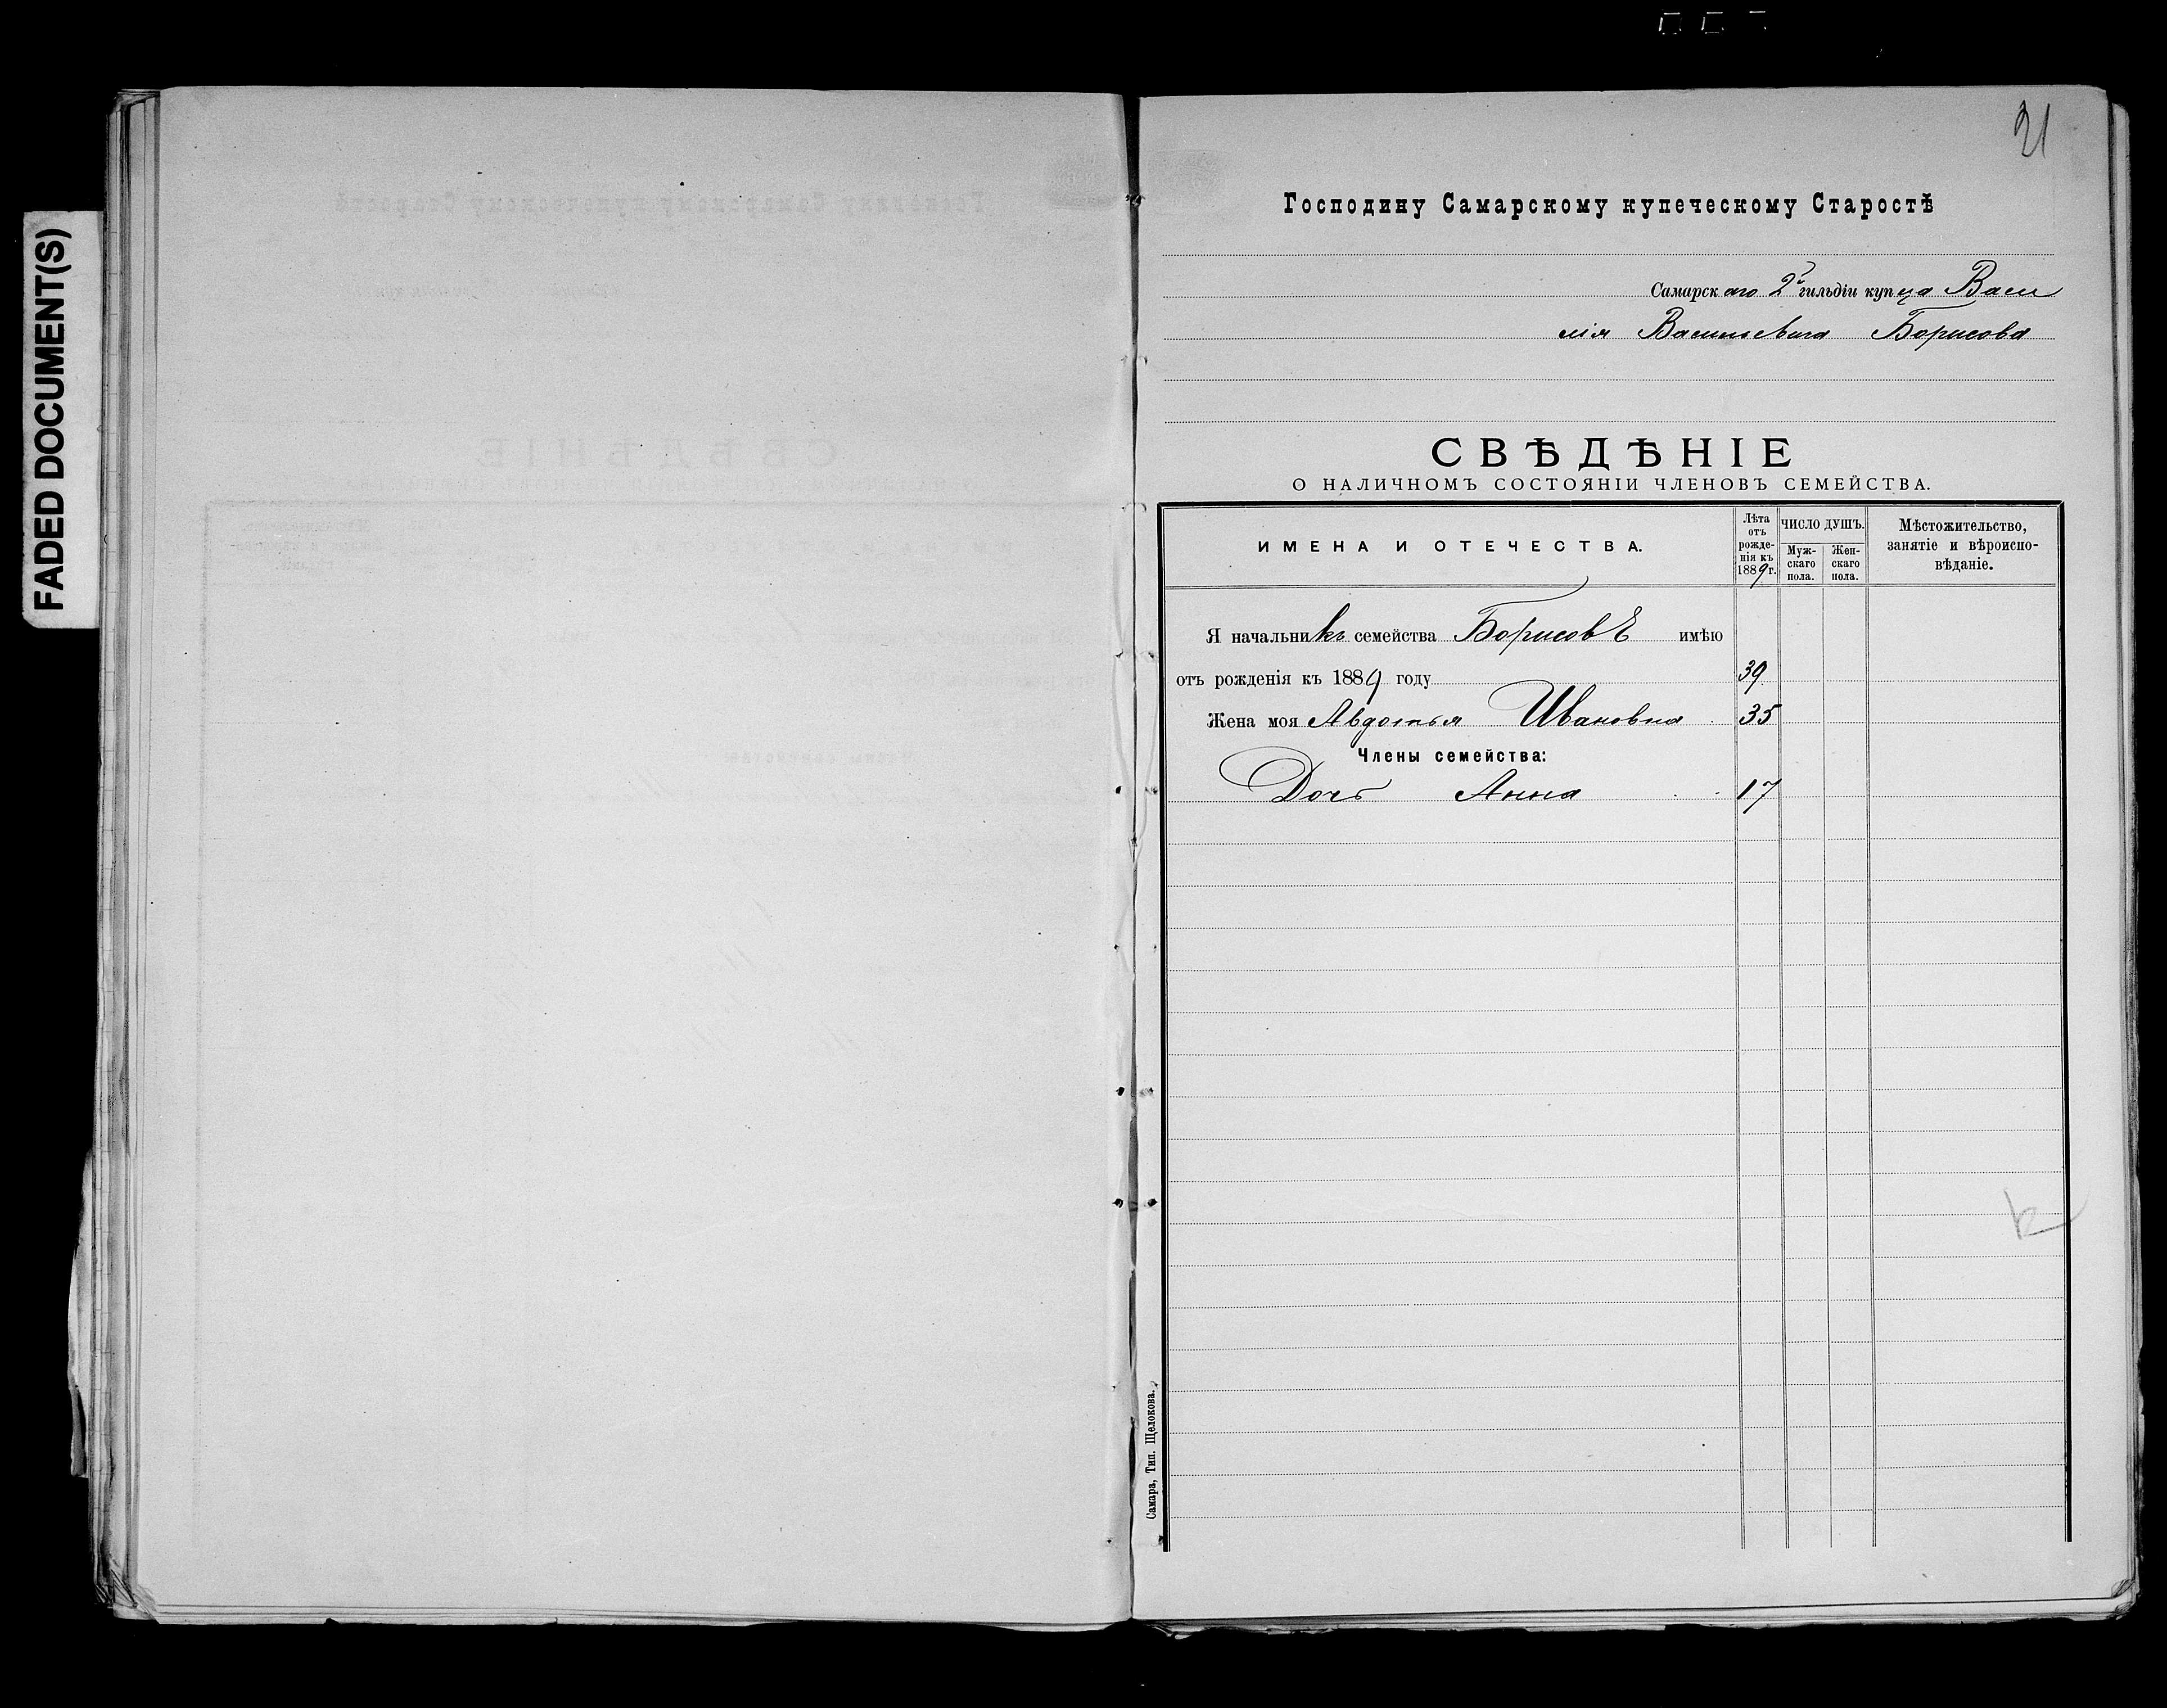 FADED DOCUMENT(S)
21
Господину Самарскому купеческому Старостѣ
Самарскаго 2й гильдіи купца Васи
лія Васильевича Борисова
СВѢДѢНІЕ
О НАЛИЧНОМЪ СОСТОЯНІИ ЧЛЕНОВЪ СЕМЕЙСТВА.
ИМЕНА И ОТЕЧЕСТВА.
Лѣта
отъ
рожде-
нія къ
1889 г.
ЧИСЛО ДУШЪ.
Муж-
скаго
пола.
Жен-
скаго
пола.
Мѣстожительство,
занятіе и вѣроиспо-
вѣданіе.
Я начальникъ семейства Борисовъ имѣю
отъ рожденія къ 1889 году 39
Жена моя Авдотья Ивановна 35
Члены семейства:
Дочь Анна 17
Самара, Тип. Щелокова.